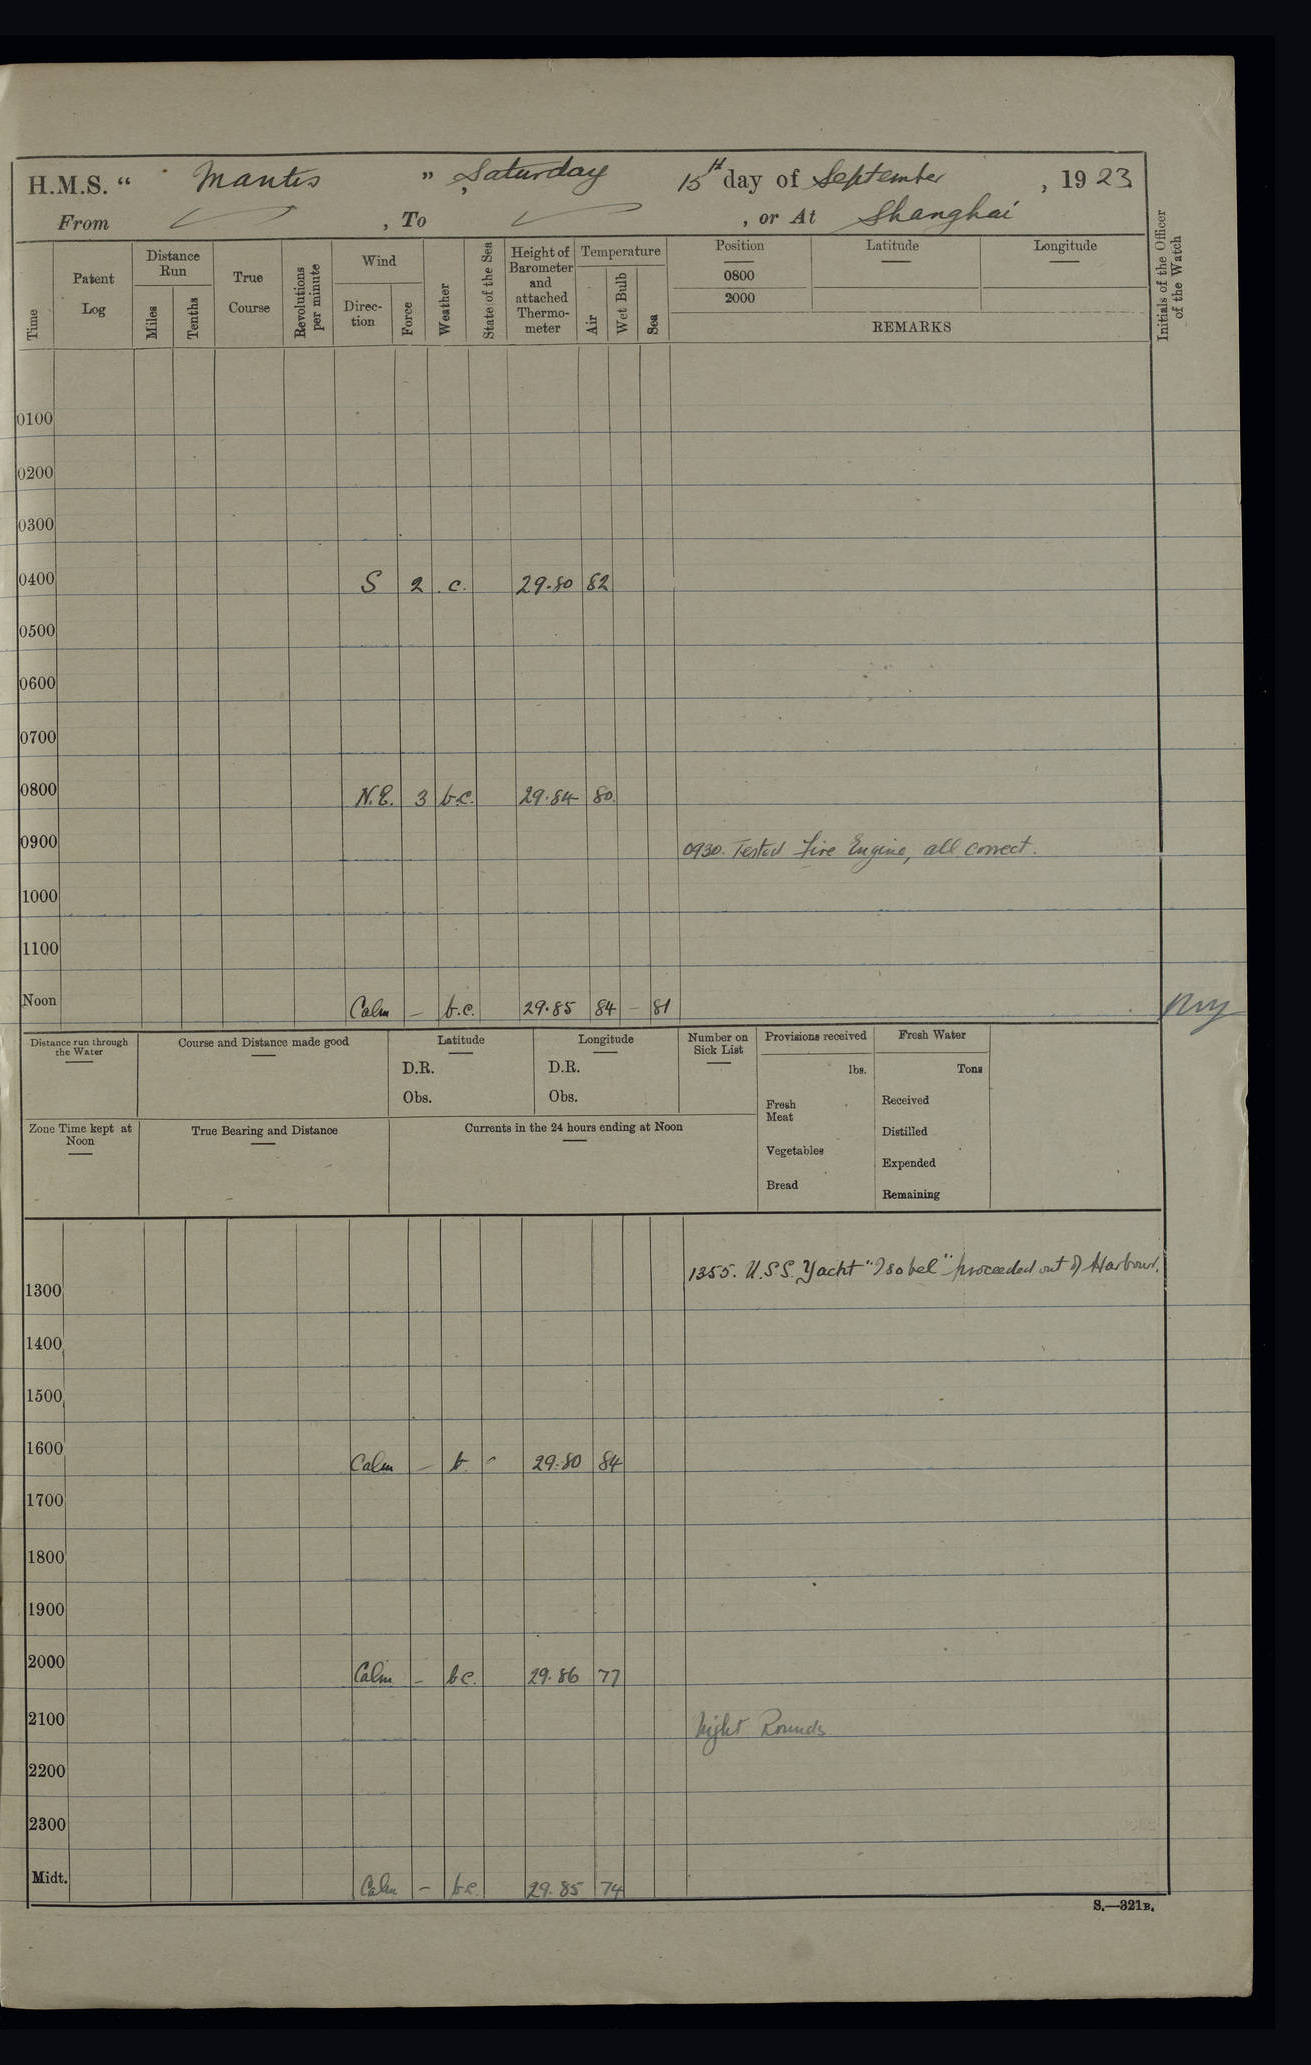 H.M.S. “ Mantis ” , Saturday 15th day of September , 1923
From , To , or At Shanghai
Time
Patent Log
Distance Run
Miles
Tenths
True Course
Revolutions per minute
Wind
Direc-tion
Force
Weather
State of the Sea
Height of Barometer and attached Thermo-meter
Temperature
Air
Wet Bulb
Sea
Position
0800
2000
Latitude
Longitude
REMARKS
Initials of the Officer of the Watch
0100
0200
0300
0400 S 2 c. 29.80 82
0500
0600
0700
0800 N.E. 3 b.c. 29.84 80
0900 0930. Tested Fire Engine, all correct.
1000
1100
Noon Calm – b.c. 29.85 84 – 81
Distance run through the Water
Course and Distance made good
Latitude
D.R.
Obs.
Longitude
D.R.
Obs.
Number on Sick List
Provisions received
lbs.
Fresh Meat
Vegetables
Bread
Fresh Water
Tons
Received
Distilled
Expended
Remaining
Zone Time kept at Noon
True Bearing and Distance
Currents in the 24 hours ending at Noon
1355. U.S.S. Yacht "Isobel" proceeded out of Harbour.
1300
1400
1500
1600 Calm – b. - 29.80 84
1700
1800
1900
2000 Calm – bc. 29.86 77
2100 Night Rounds
2200
2300
Midt. Calm – b.c. 29.85 74
S.—321B.